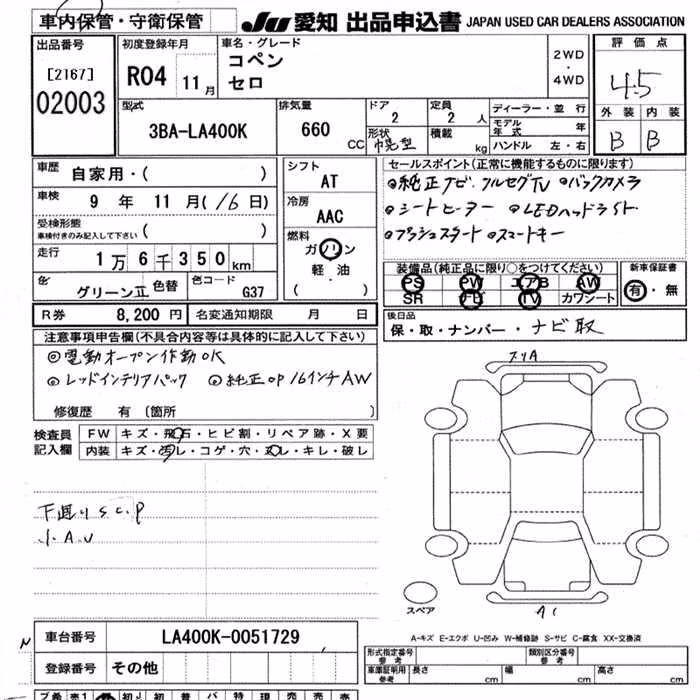 車内保管・守衛保管 JU 愛知 出品申込書 JAPAN USED CAR DEALERS ASSOCIATION
出品番号 [2167] 02003
初度登録年月 R04 11月
車名・グレード コペン セロ
2WD・4WD
評価点 4.5
外装 内装
B B
型式 3BA-LA400K
排気量 660 CC
ドア 2
定員 2 人
形状 幌型
積載 kg
ディーラー・並行
モデル年式 年
ハンドル 左・右
車歴 自家用・( )
車検 9年 11月(16日)
受検形態 車検付きのみ記入して下さい ( )
走行 1万6千350km
色 グリーンⅡ 色替 色コード G37
シフト AT
冷房 AAC
燃料 ガソリン
軽・油
( )
セールスポイント(正常に機能するものに限ります)
◎純正ナビ、フルセグTV ◎バックカメラ
◎シートヒーター ◎LEDヘッドライト
◎プッシュスタート ◎スマートキー
装備品(純正品に限り○をつけてください)
PS・PW・エアB・AW
SR・ナビ・TV・カワシート
新車保証書 有・無
R券 8,200円 名変通知期限 月 日
後日品
保・取・ナンバー・ナビ取
注意事項申告欄(不具合内容等は具体的に記入して下さい)
◎電動オープン作動OK
◎レッドインテリアパック ◎純正OP16インチAW
修復歴 有 〔箇所 〕
検査員記入欄
FW キズ・飛石・ヒビ割・リペア跡・X要
内装 キズ・汚レ・コゲ・穴・スレ・キレ・破レ
下廻りS.C.P
スリA
スペア
A1
A-キズ E-エクボ U-凹み W-補修跡 S-サビ C-腐食 XX-交換済
車台番号 LA400K-0051729
登録番号 その他
形式指定番号 参考
類別区分番号 参考
車庫証明用 参考 長さ cm 幅 cm 高さ cm